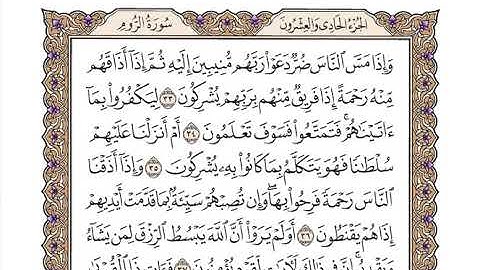 الجزء الحادي والعشرون سورة الروم
وَإِذَا مَسَّ ٱلنَّاسَ ضُرٌّ دَعَوْا۟ رَبَّهُم مُّنِيبِينَ إِلَيْهِ ثُمَّ إِذَآ أَذَاقَهُم
مِّنْهُ رَحْمَةً إِذَا فَرِيقٌ مِّنْهُم بِرَبِّهِمْ يُشْرِكُونَ ٣٣ لِيَكْفُرُوا۟ بِمَآ
ءَاتَيْنَٰهُمْ ۚ فَتَمَتَّعُوا۟ فَسَوْفَ تَعْلَمُونَ ٣٤ أَمْ أَنزَلْنَا عَلَيْهِمْ
سُلْطَٰنًا فَهُوَ يَتَكَلَّمُ بِمَا كَانُوا۟ بِهِۦ يُشْرِكُونَ ٣٥ وَإِذَآ أَذَقْنَا
ٱلنَّاسَ رَحْمَةً فَرِحُوا۟ بِهَا ۖ وَإِن تُصِبْهُمْ سَيِّئَةٌۢ بِمَا قَدَّمَتْ أَيْدِيهِمْ
إِذَا هُمْ يَقْنَطُونَ ٣٦ أَوَلَمْ يَرَوْا۟ أَنَّ ٱللَّهَ يَبْسُطُ ٱلرِّزْقَ لِمَن يَشَآءُ